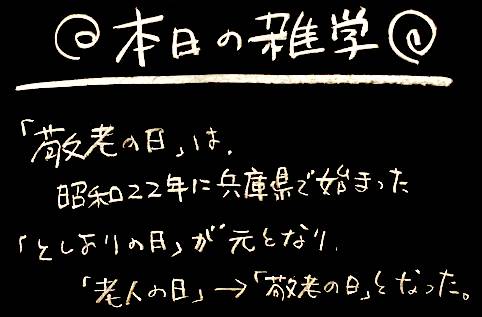 @本日の雑学@
「敬老の日」は、
昭和22年に兵庫県で始まった
「としよりの日」が元となり、
「老人の日」→「敬老の日」となった。